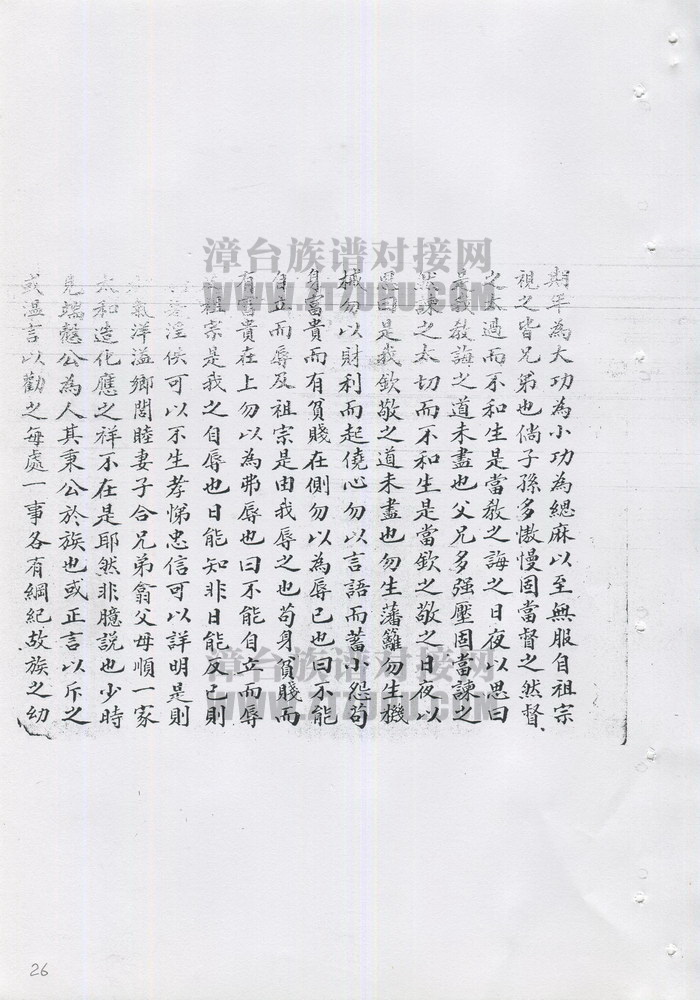 期年為大功為小功為緦麻以至無服自祖宗
視之皆兄弟也倘子孫多傲慢固當督之然督
之太過而不和生是當教之誨之日夜以思曰
是我教誨之道未盡也父兄多强壓固當諫之
然諫之太切而不和生是當欽之敬之日夜以
思曰是我欽敬之道未盡也勿生藩籬勿生機
械勿以財利而起僥心勿以言語而蓄小怨苟
身富貴而有貧賤在側勿以為辱己也曰不能
自立而辱及祖宗是由我辱之也苟身貧賤而
有富貴在上勿以為弗辱也曰不能自立而辱
祖宗是我之自辱也日能知非日能反已則
淫佚可以不生孝悌忠信可以詳明是則
氣洋溢鄉閭睦妻子合兄弟翕父母順一家
太和造化應之祥不在是耶然非臆説也少時
見端慤公為人其秉公於族也或正言以斥之
或溫言以勸之每處一事各有綱紀故族之幼
漳台族谱对接网
WWW.ZTZUPU.COM
漳台族谱对接网
WWW.ZTZUPU.COM
26